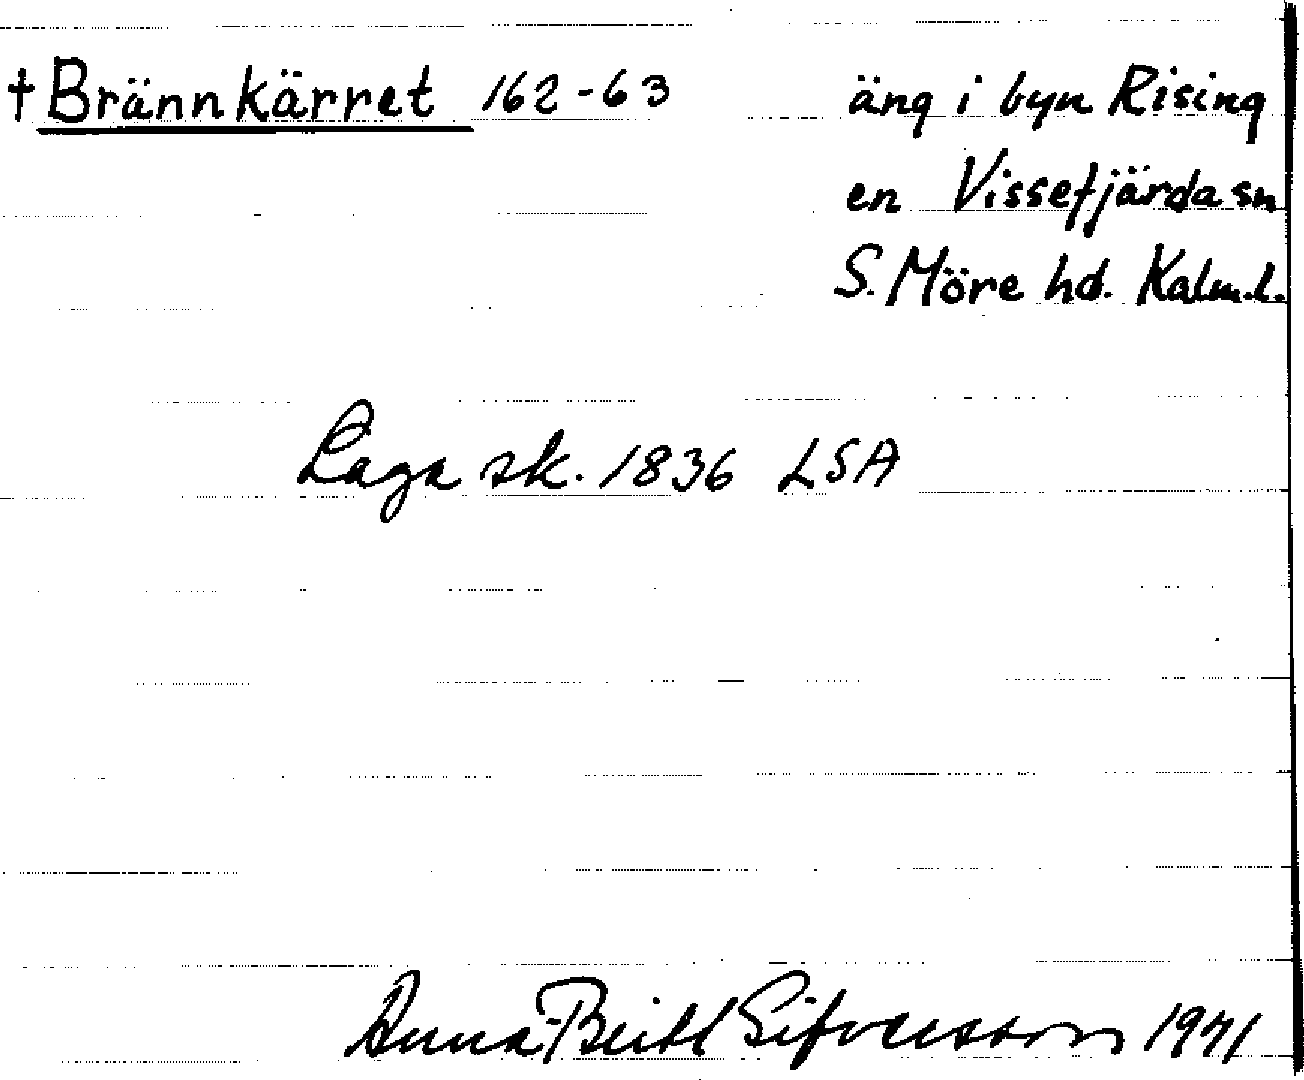 † Brännkärret 162-63 äng i byn Rising
en Vissefjärda sn
S. Möre hd. Kalm.l.
Laga sk. 1836 LSA
Anna-Britt Sifvensson 1971